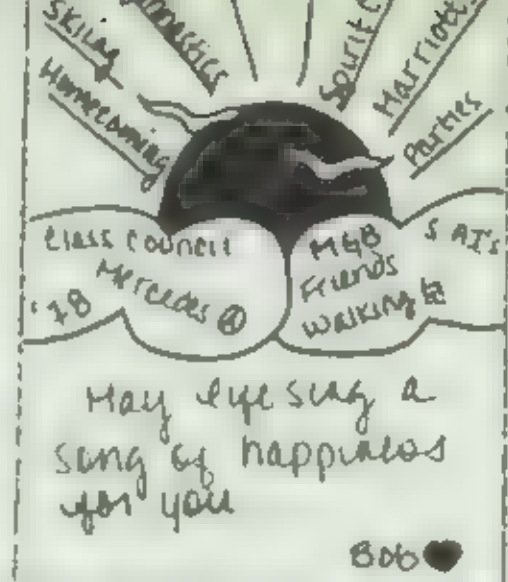 Skiing
Gymnastics
Spirit C
Marriott
Parties
Homecoming
Class Council
Mercedes
'78
MGB
Friends
Walking
SAT's
May life sing a
song of happiness
for you
Bob